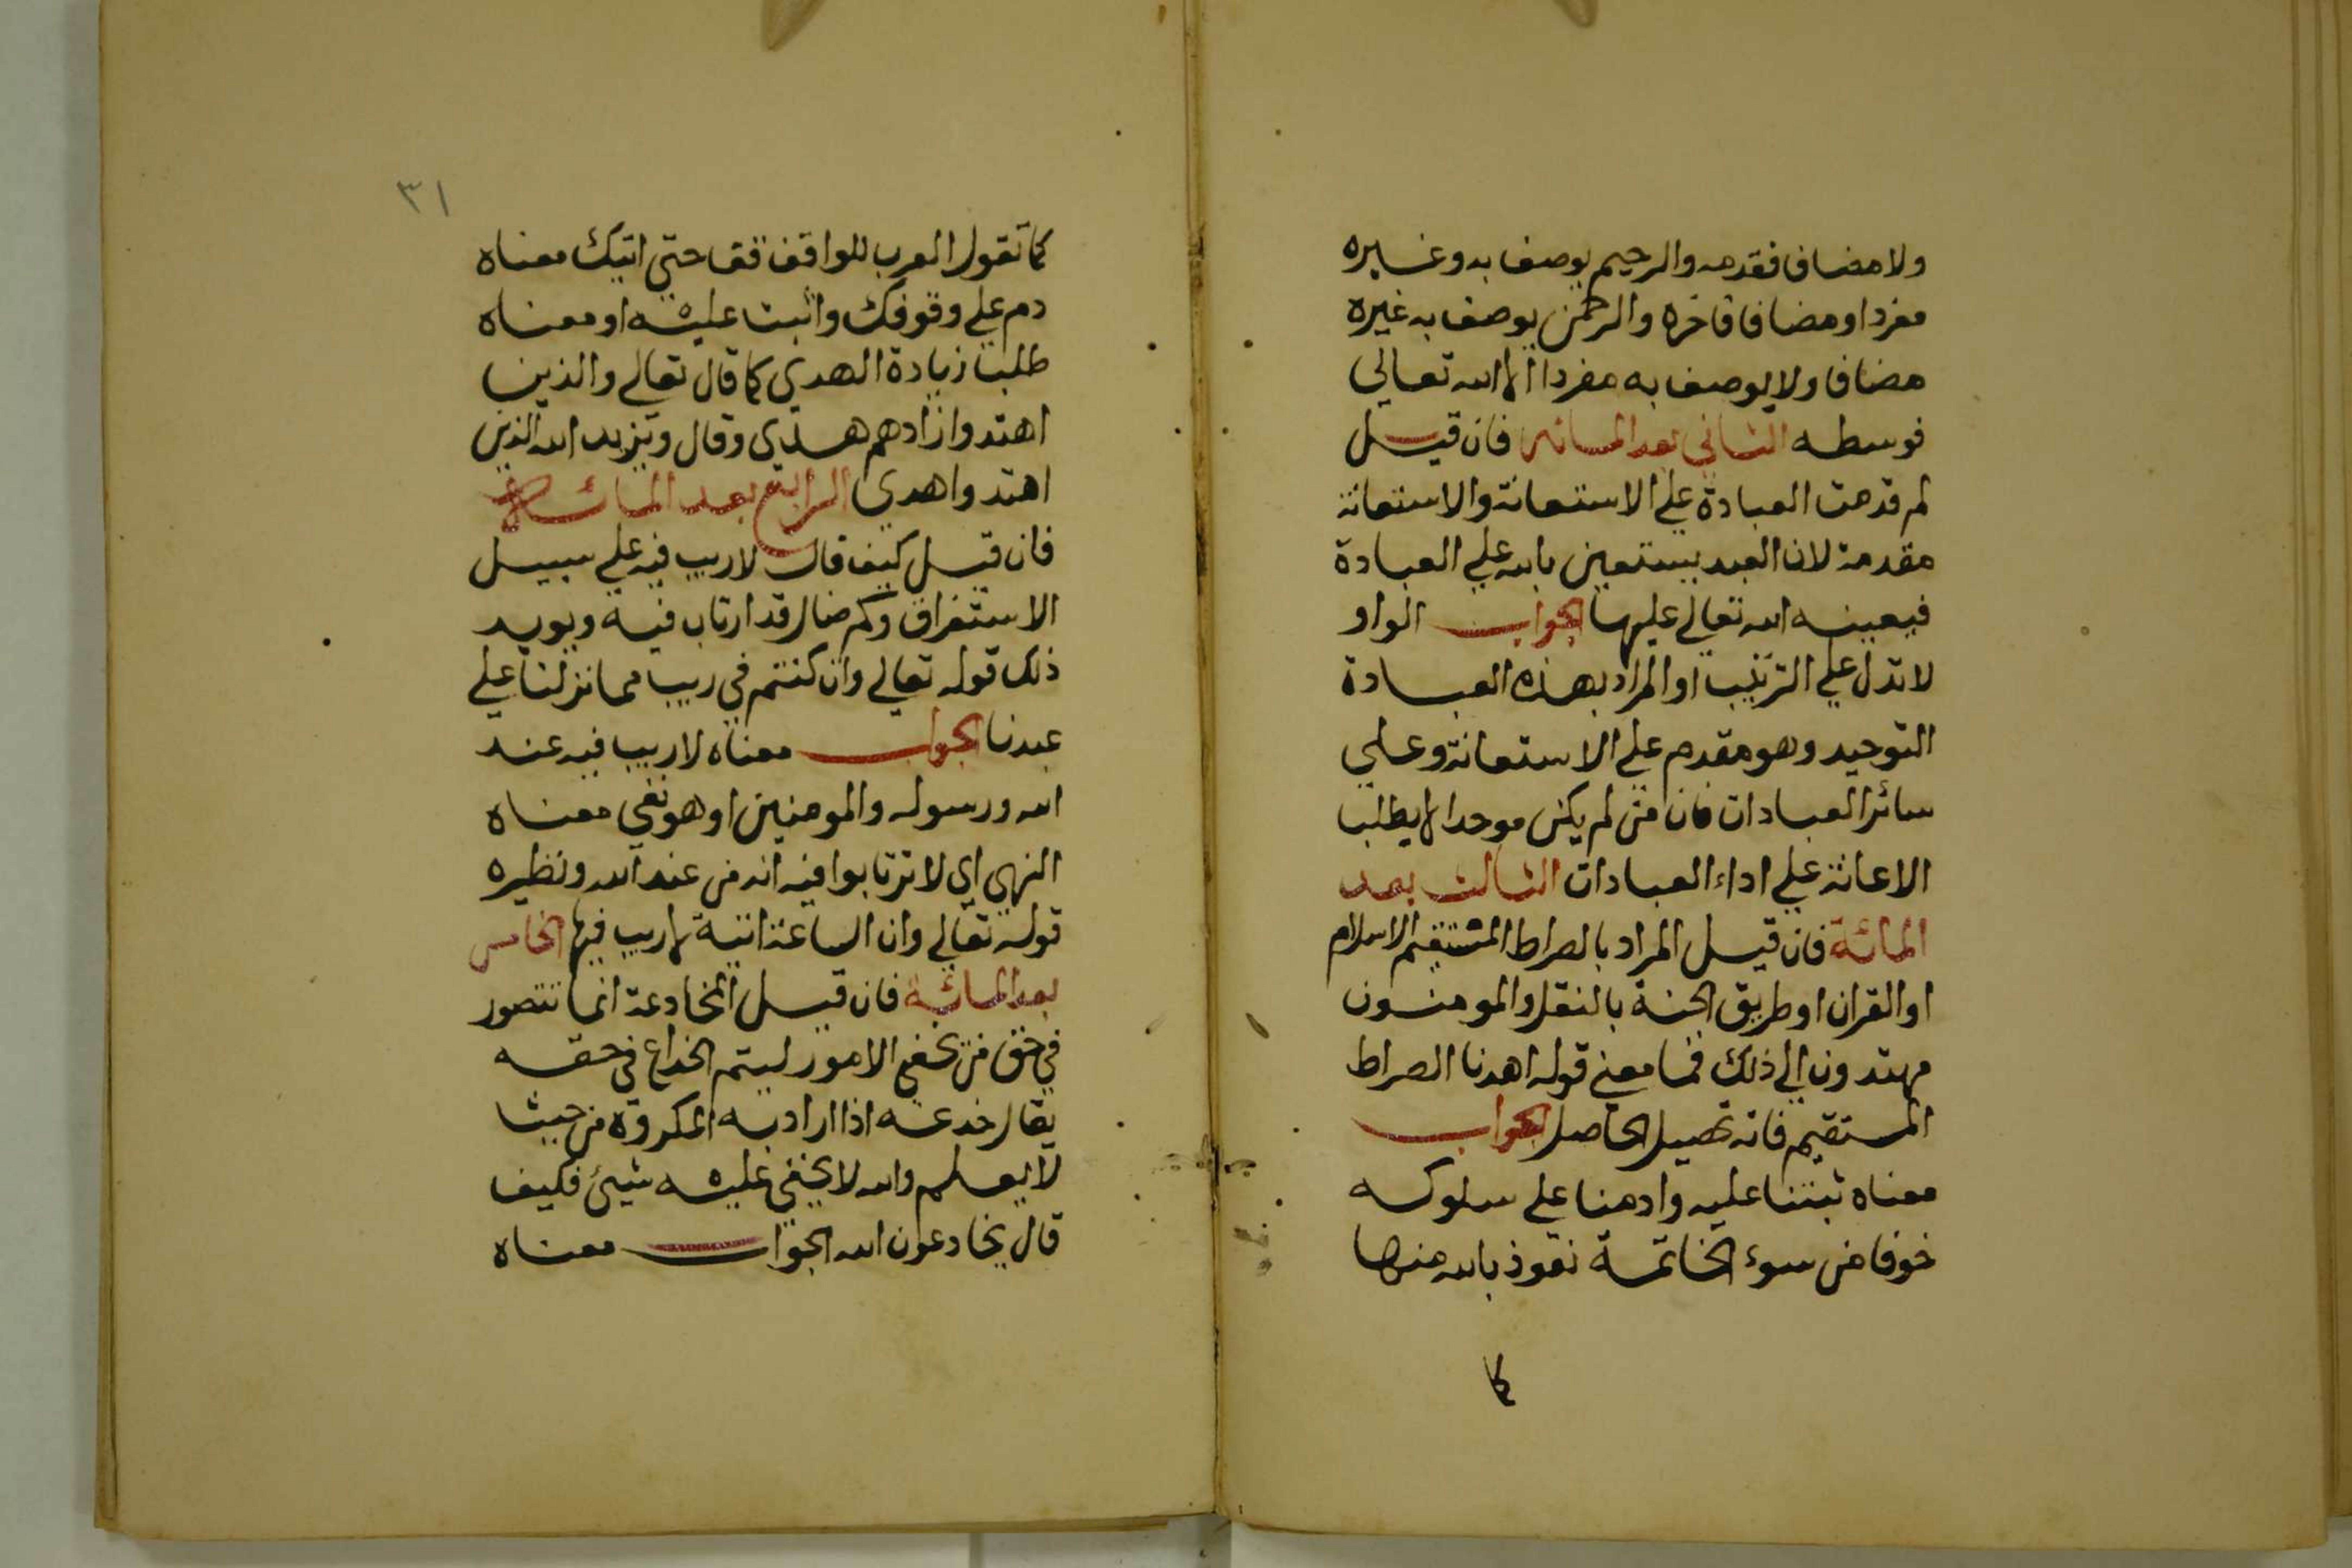 ولا مضاف فقدمه والرحيم يوصف به وغيره
مفردا ومضافا فاخره والرحمن يوصف به غيره
مضافا ولا يوصف به مفردا الا الله تعالي
فوسطه الثاني بعد المائه فان قيل
لم قدمت العبادة علي الاستعانة والاستعانة
مقدمة لان العبد يستعين بالله علي العبادة
فيعينه الله تعالي عليها الجواب الواو
لا تدل علي الترتيب او المراد بهذه العبادة
التوحيد وهو مقدم علي الاستعانة وعلي
سائر العبادات فان من لم يكن موحدا لا يطلب
الاعانة علي اداء العبادات الثالث بعد
المائة فان قيل المراد بالصراط المستقيم الاسلام
او القران او طريق الجنة بالنقل والمومنون
مهتدون الي ذلك فما معني قوله اهدنا الصراط
المستقيم فانه تحصيل الحاصل الجواب
معناه ثبتنا عليه وادمنا علي سلوكه
خوفا من سوء الخاتمة نعوذ بالله منها
كما
٣١
كما تقول العرب للواقف قف حتي اتيك معناه
دم علي وقوفك واثبت عليه او معناه
طلب زيادة الهدي كما قال تعالي والذين
اهتدوا زادهم هدي وقال ويزيد الله الذين
اهتدوا هدي الرابع بعد المائة
فان قيل كيف قال لا ريب فيه علي سبيل
الاستغراق وكم ضال قد ارتاب فيه ويويد
ذلك قوله تعالي وان كنتم في ريب مما نزلنا علي
عبدنا الجواب معناه لا ريب فيه عند
الله ورسوله والمومنين او هو نفي معناه
النهي اي لا ترتابوا فيه انه من عند الله ونظيره
قوله تعالي وان الساعة اتية لا ريب فيها الخامس
بعد المائة فان قيل المخادعة انما تتصور
في حق من تخفي الامور ليتم الخداع في حقه
يقال خدعه اذا اراد به المكروه من حيث
لا يعلم والله لا يخفي عليه شيئ فكيف
قال يخادعون الله الجواب معناه